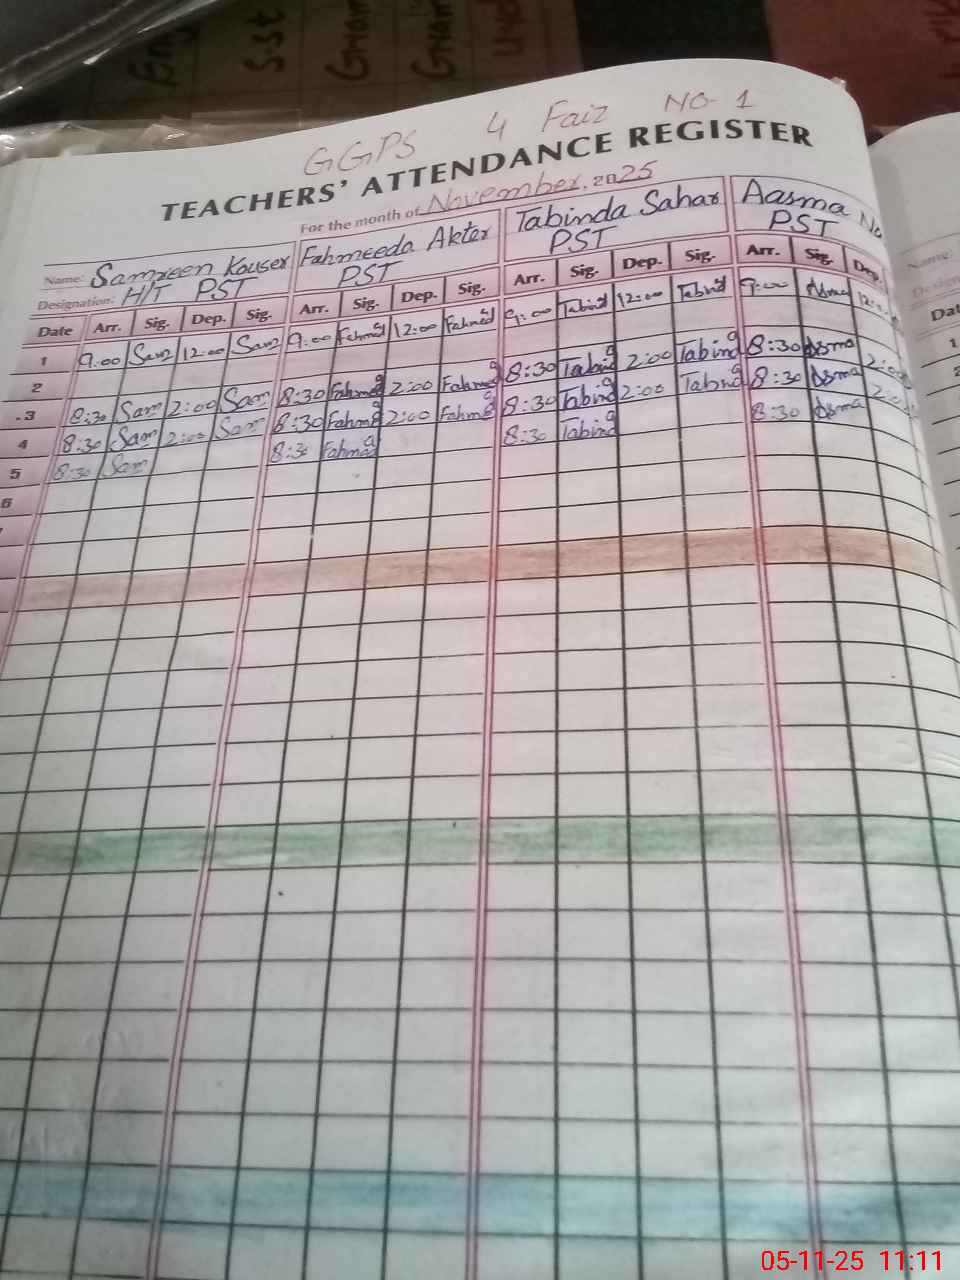 GGPS 4 Faiz NO-1
TEACHERS' ATTENDANCE REGISTER
For the month of November, 2025
Name: Samreen Kouser Fahmeeda Akter Tabinda Sahar Aasma
Designation: H/T PST PST PST PST
Date Arr. Sig. Dep. Sig. Arr. Sig. Dep. Sig. Arr. Sig. Dep. Sig. Arr. Sig. Dep.
1 9:00 Sam 12:00 Sam 9:00 Fahmed 12:00 Fahmed 9:00 Tabind 12:00 Tabind 9:00 Asma 12:00
2
3 8:30 Sam 2:00 Sam 8:30 Fahmed 2:00 Fahmed 8:30 Tabind 2:00 Tabind 8:30 Asma 2:00
4 8:30 Sam 2:00 Sam 8:30 Fahmed 2:00 Fahmed 8:30 Tabind 2:00 Tabind 8:30 Asma 2:00
5 8:30 Sam 8:30 Fahmed 8:30 Tabind 8:30 Asma
6
Name:
05-11-25 11:11